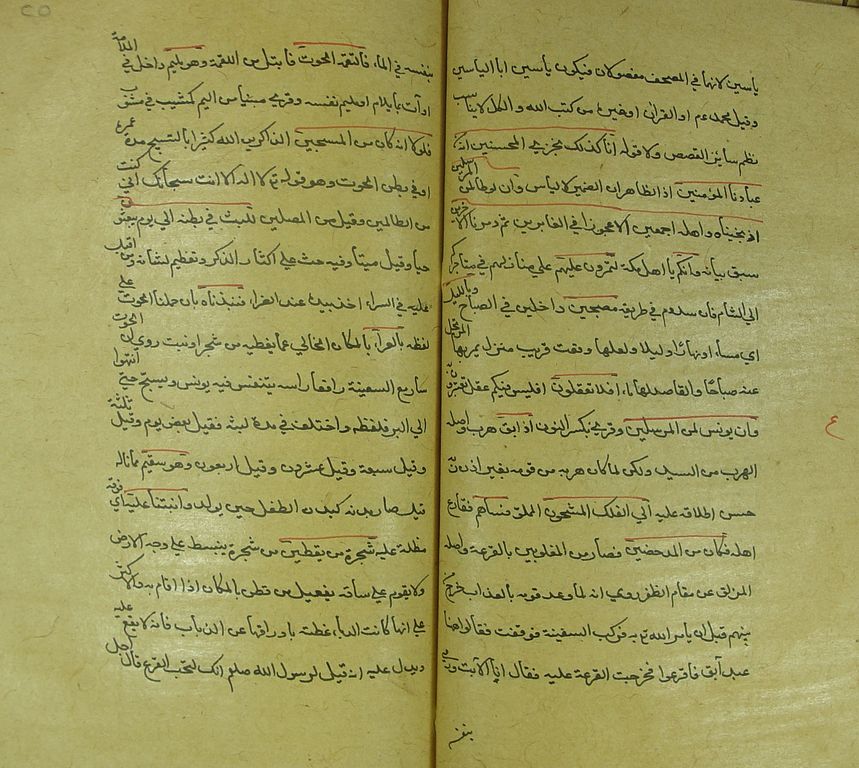 ياسين لانهما في المصحف مفصولان فيكون ياسين ابا الياسين
وقيل محمد عم او القرآن او غيره من كتب الله والكل لا يناسب
نظم سائر القصص ولا قوله انا كذلك نجزي المحسنين انه من
عبادنا المؤمنين اذ الظاهر ان الضمير لالياس وان لوطا لمن المرسلين
اذ نجيناه واهله اجمعين الا عجوزا في الغابرين ثم دمرنا الآخرين
سبق بيانه وانكم يا اهل مكة لتمرون عليهم على منازلهم في متاجركم
الى الشام فان سدوم في طريقه مصبحين داخلين في الصباح وبالليل
اي مساء او نهارا وليلا ولعلها وقعت قريب منزل يمر بها المرتحل
عنه صباحا والقاصد لها مساء افلا تعقلون افليس فيكم عقل تعتبرون
وان يونس لمن المرسلين وقرئ بكسر النون اذ ابق هرب واصله
الهرب من السيد ولكن لما كان هربه من قومه بغير اذن ربه
حسن اطلاقه عليه الى الفلك المشحون المملو فساهم فقارع
اهله فكان من المدحضين فصار من المغلوبين بالقرعة واصله
المزلق عن مقام الظفر روي انه لما وعد قومه بالعذاب خرج من
بينهم قبل ان يامر الله به فركب السفينة فوقفت فقالوا هنا
عبد آبق فاقرعوا فخرجت القرعة عليه فقال انا الآبق ورمى
بنفسه
بنفسه في الماء فالتقمه الحوت فابتلعه من اللقمة وهو مليم داخل في الملامة
او آت بما يلام او مليم نفسه وقرئ مبنيا من اليم كمشيب في مشوب
فلولا انه كان من المسبحين الذاكرين الله كثيرا بالتسبيح مدة عمره
او في بطن الحوت وهو قوله تع لا اله الا انت سبحانك اني كنت
من الظالمين وقيل من المصلين للبث في بطنه الى يوم يبعثون
حيا وقيل ميتا وفيه حث على اكثار الذكر وتعظيم لشانه ومن اقبل
عليه في السراء اخذ بيده عند الضراء فنبذناه بان حملنا الحوت على
لفظه بالعراء بالمكان الخالي عما يغطيه من شجر او نبت روي ان الحوت
سار مع السفينة رافعا راسه يتنفس فيه يونس ويسبح حتى انتهوا
الى البر فلفظه واختلف في مدة لبثه فقيل بعض يوم وقيل ثلثة
وقيل سبعة وقيل عشرون وقيل اربعون وهو سقيم مما ناله
قيل صار بدنه كبدن الطفل حين يولد وانبتنا عليه اي فوقه
مظلة عليه شجرة من يقطين من شجرة ينبسط على وجه الارض
ولا يقوم على ساقه يفعيل من قطن بالمكان اذا اقام به والاكثر
على انها كانت الدباء غطته باوراقها عن الذباب فانه لا يقع عليه
ويدل عليه انه قيل لرسول الله صلعم انك لتحب القرع قال اجل